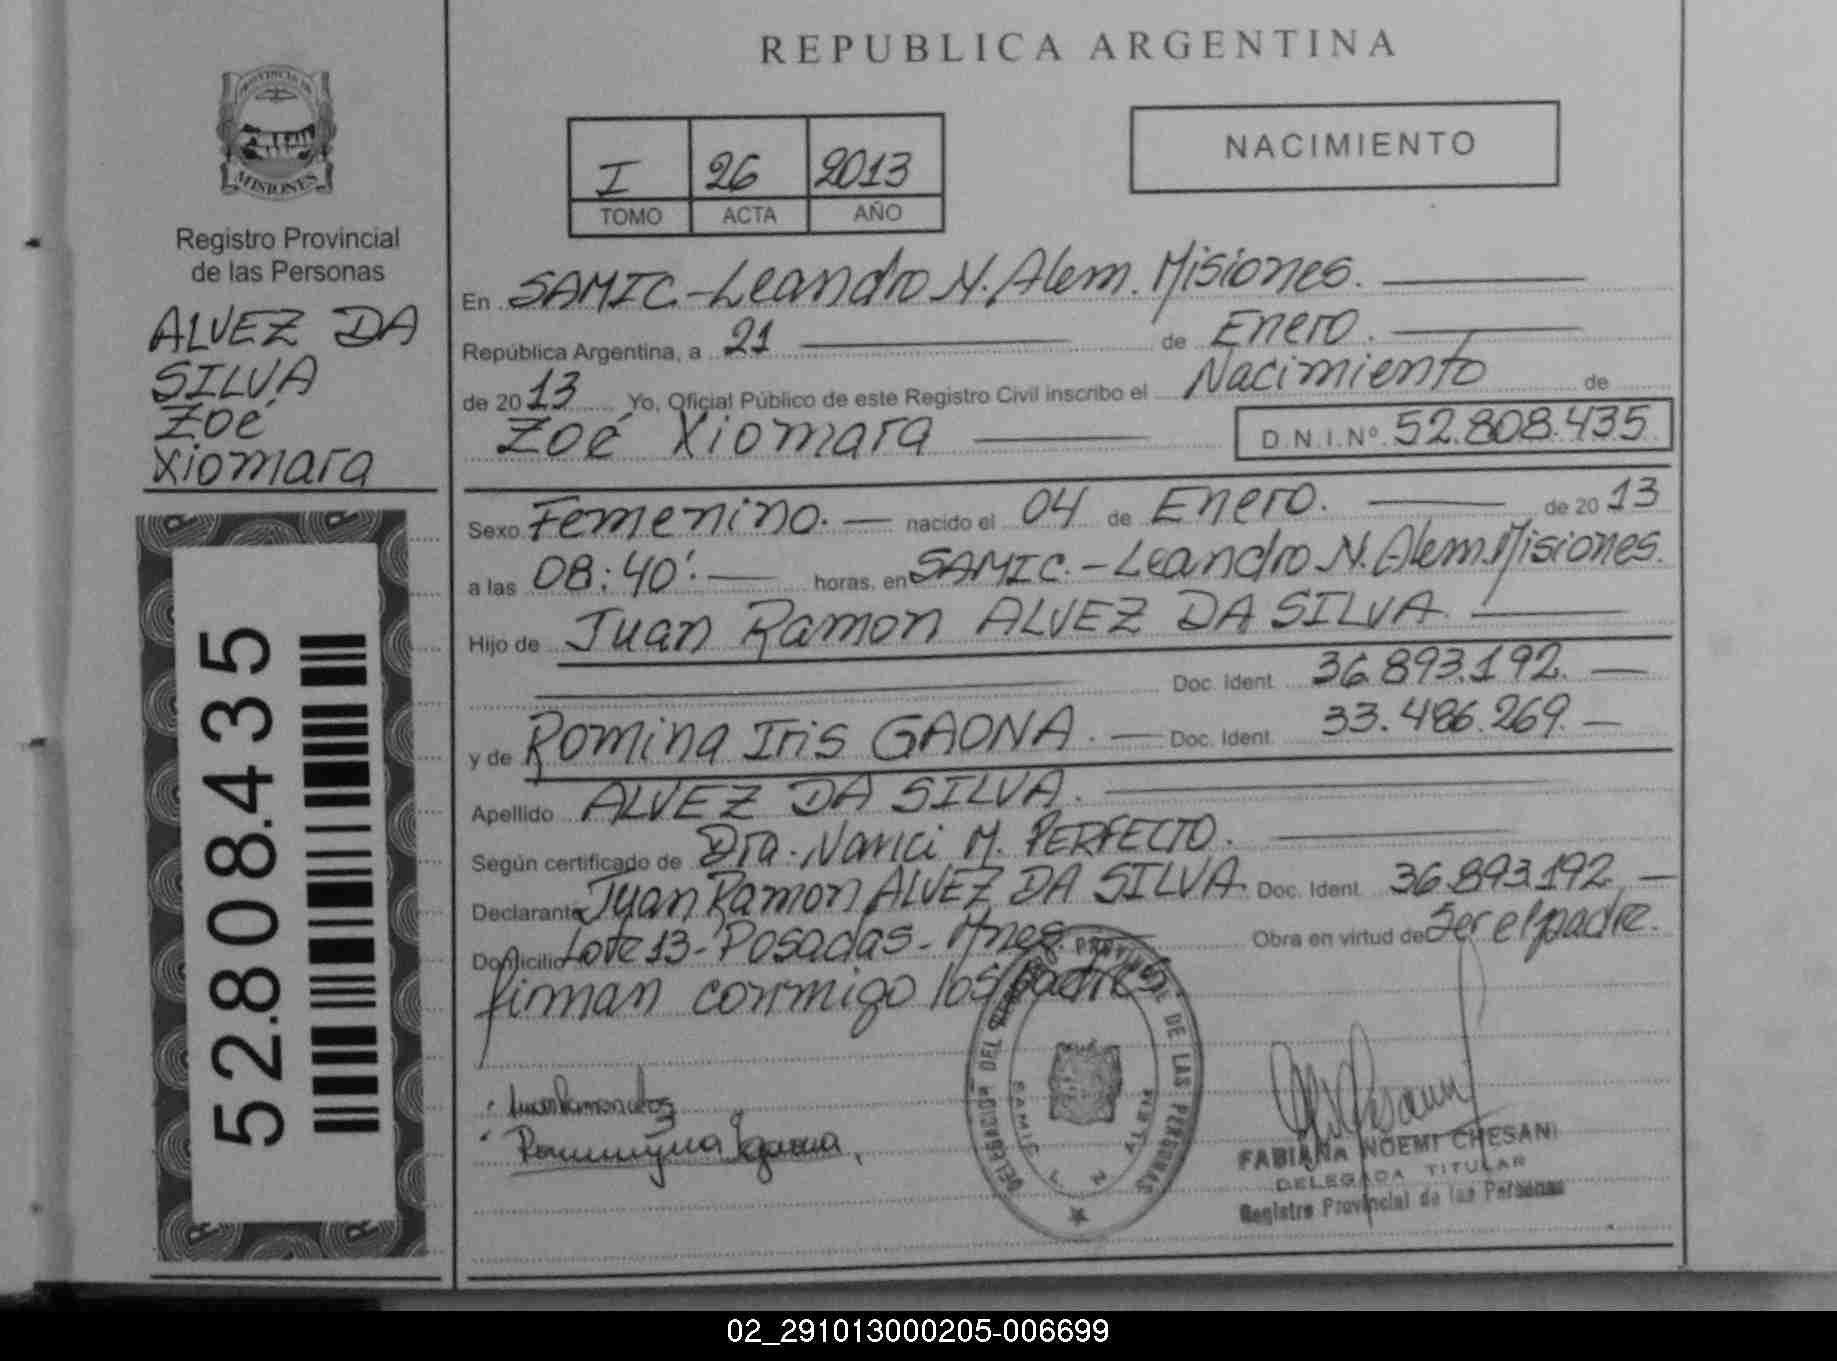 REPUBLICA ARGENTINA
NACIMIENTO
I 26 2013
TOMO ACTA AÑO
MISIONES
Registro Provincial
de las Personas
ALVEZ DA
SILVA
Zoé
Xiomara
52.808.435
En SAMIC.-Leandro N. Alem. Misiones.
República Argentina, a 21 de Enero.
de 2013 Yo, Oficial Público de este Registro Civil inscribo el Nacimiento de
Zoé Xiomara D.N.I.Nº 52.808.435.
Sexo Femenino. nacido el 04 de Enero. de 2013
a las 08:40'. horas, en SAMIC.-Leandro N. Alem. Misiones.
Hijo de Juan Ramon ALVEZ DA SILVA.
Doc. Ident. 36.893.192.
y de Romina Iris GAONA. Doc. Ident. 33.486.269.
Apellido ALVEZ DA SILVA.
Según certificado de Dra. Nanci M. PERFECTO.
Declarante Juan Ramon ALVEZ DA SILVA. Doc. Ident. 36.893.192.
Domicilio Lote 13-Posadas-Mnes. Obra en virtud de Ser el padre.
firman conmigo los padres
PROVINCIAL DE LAS PERSONAS
SAMIC
FABIANA NOEMI CHESANI
DELEGADA TITULAR
Registro Provincial de las Personas
02_291013000205-006699